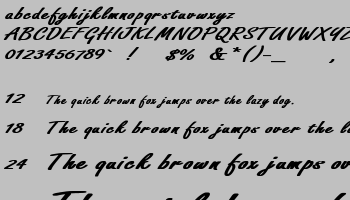 abcdefghijklmnopqrstuvwxyz
ABCDEFGHIJKLMNOPQRSTUVWXYZ
0123456789` ! $% & *()-_ ,
12 The quick brown fox jumps over the lazy dog.
18 The quick brown fox jumps over the
24 The quick brown fox jumps